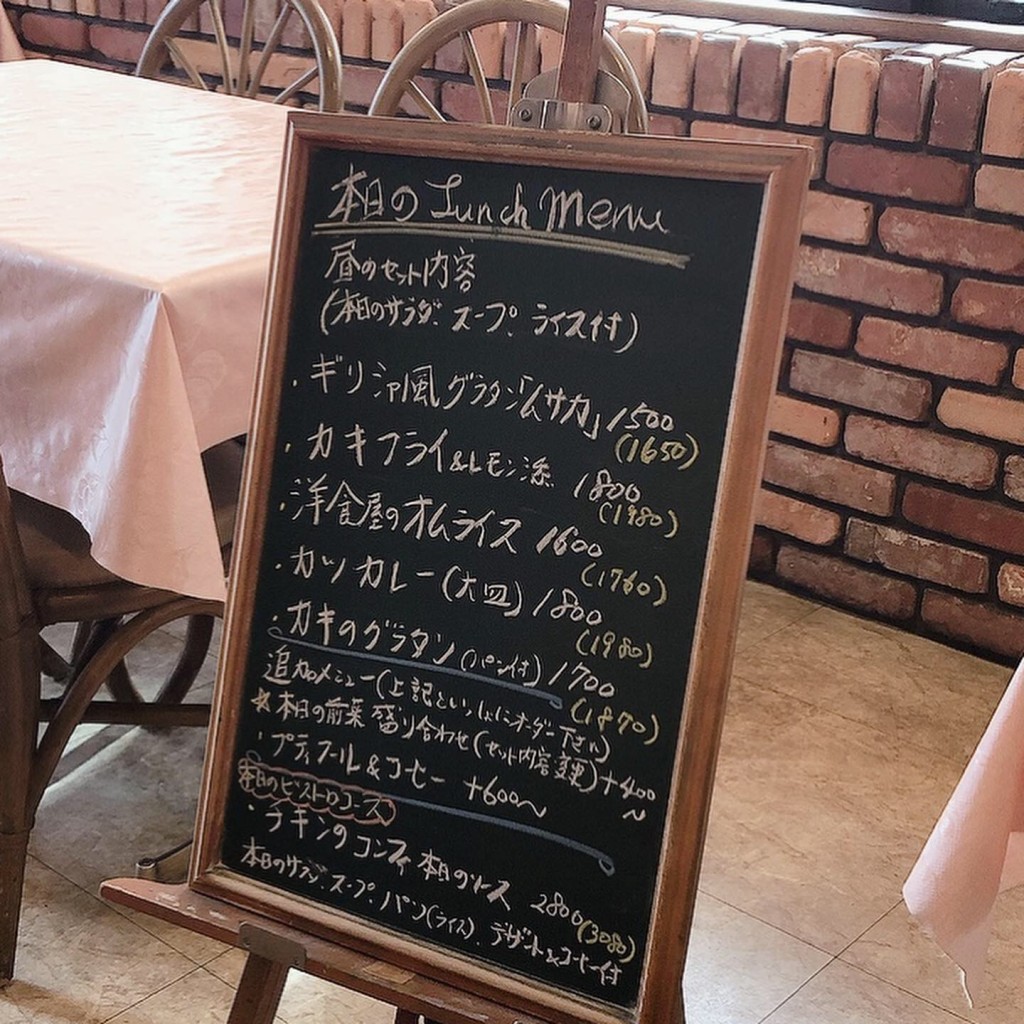 本日の Lunch Menu
昼のセット内容
(本日のサラダ、スープ、ライス付)
・ギリシャ風グラタン「ムサカ」1500
(1650)
・カキフライ&レモン添 1800
(1980)
・洋食屋のオムライス 1600
(1760)
・カツカレー(大皿) 1800
(1980)
・カキのグラタン(パン付) 1700
(1870)
追加メニュー(上記といっしょにオーダー下さい)
☆本日の前菜盛り合わせ(セット内容変更)+400～
・プティフール&コーヒー +600～
本日のビストロコース
・チキンのコンフィ 本日のソース 2800(3080)
本日のサラダ、スープ、パン(ライス)、デザート&コーヒー付